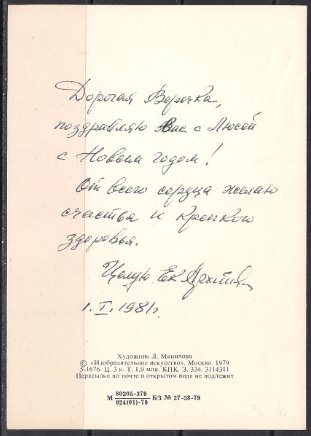 Дорогая Верочка,
поздравляю Вас с Люсей
с Новым годом!
От всего сердца желаю
счастья и крепкого
здоровья.
Целую Ек.
1.I.1981г.
Художник Л. Манилова
© «Изобразительное искусство». Москва. 1979
5-1676. Ц. 3 к. Т. 1,9 млн. КПК. З. 334. 3114311
Пересылке по почте в открытом виде не подлежит
М 80205-379/024(01)-79 БЗ № 27-38-79